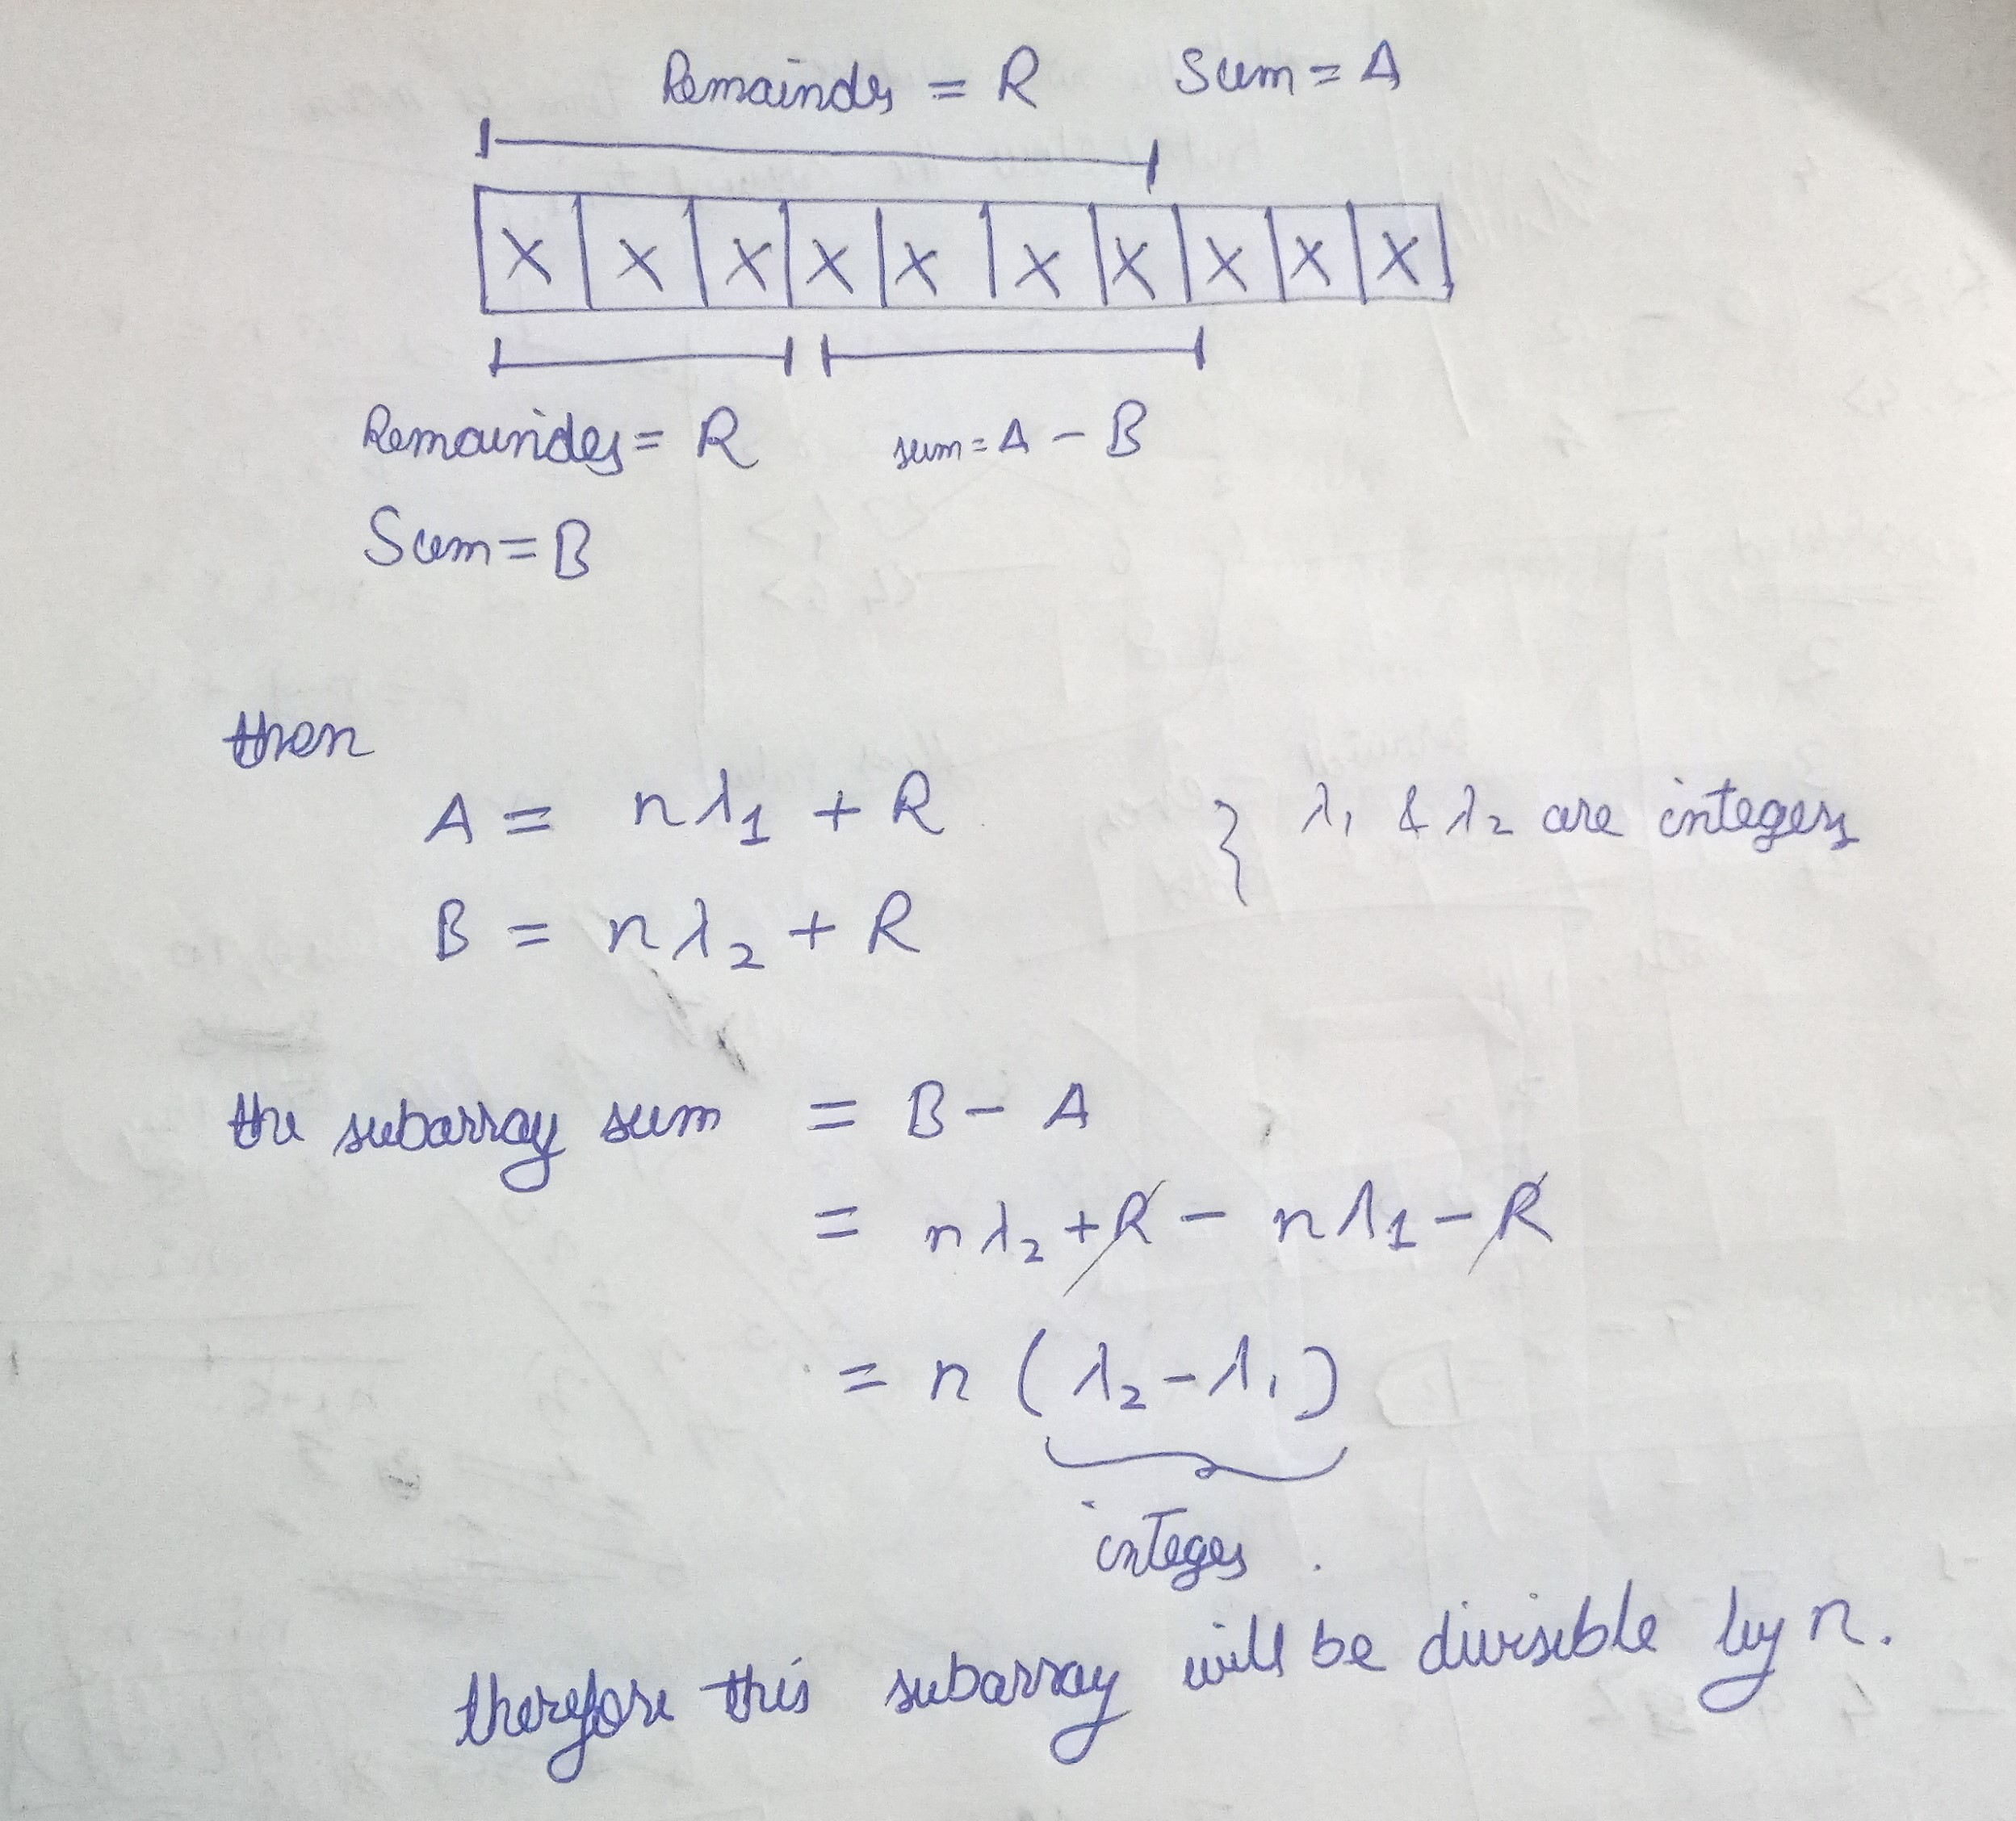 Remainder = R Sum = A
X X X X X X X X X X
Remainder = R sum = A - B
Sum = B
then
A = nλ1 + R } λ1 & λ2 are integers
B = nλ2 + R
the subarray sum = B - A
= nλ2 + R - nλ1 - R
= n (λ2 - λ1)
integer .
therefore this subarray will be divisible by n.